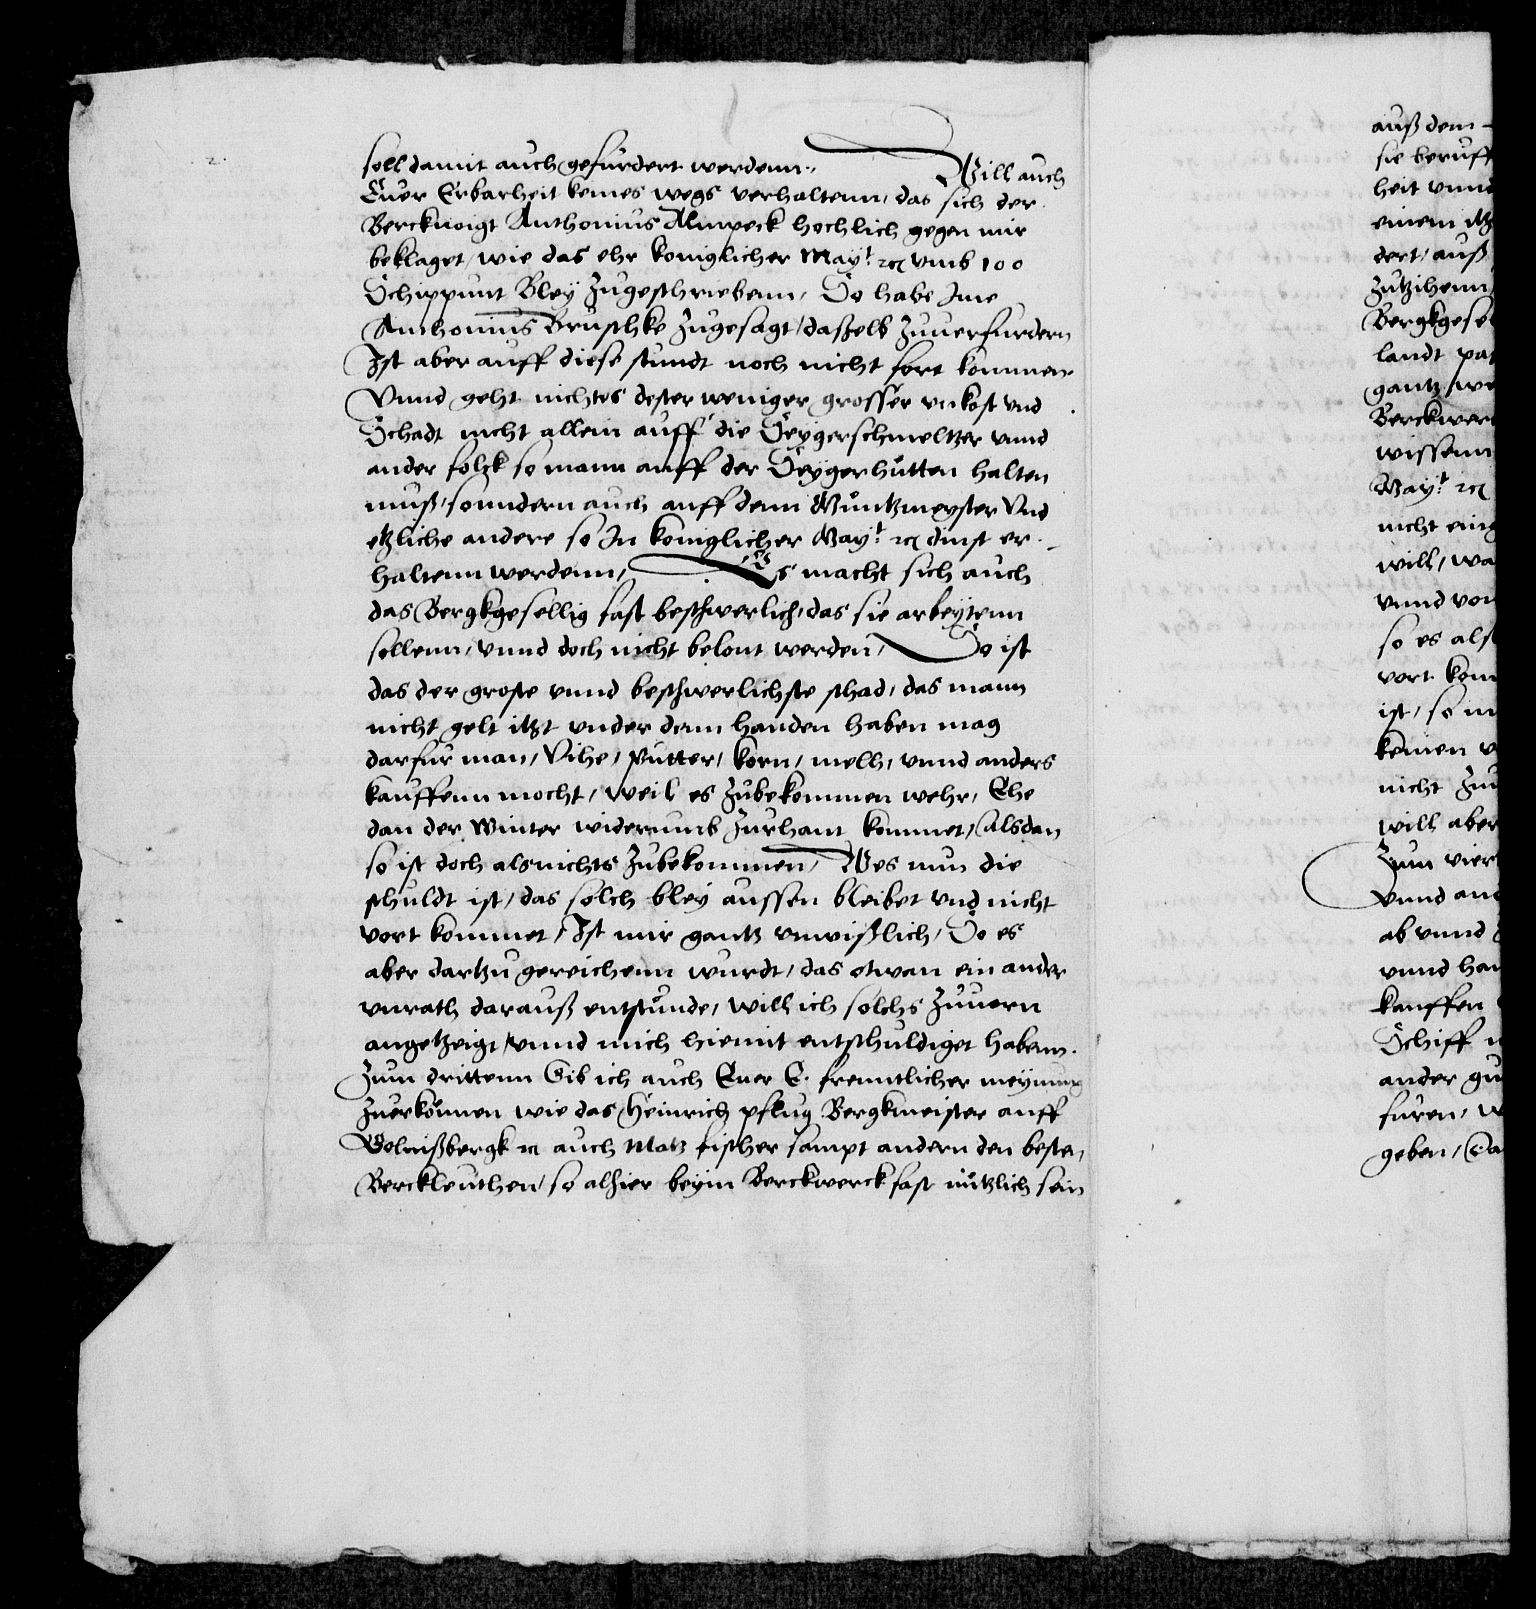 soll damit auch gefurdert werdenn, Will auch
Euer Erbarheit keines wegs verhaltenn, das sich der
Berckuoigt Anthonius Alnpeck hochlich gegen mir
beklaget, wie das ehr koniglicher Mayt ꝛc vmb 100
Schippunt Bley zugeschriebenn, So habe Ime
Anthonius Bruschke zugesagt, daßelb zuuerfurdern
Ist aber auff diese stundt noch nicht fort kommen.
Vnnd geht nichtes dester weniger grosser vnkost vnd
Schadt nicht allein auff die Seygerschmeltzer vnnd
ander folgk so mann auff der Seygerhutten halten
muß, sonndern auch auff denn Muntzmeyster Vnd
etzliche andere so In koniglicher Mayt ꝛc dinst er-
haltenn werdenn, Es macht sich auch
das Bergkgesellig fast beschwerlich, das sie arbeytenn
sollenn, vnnd doch nicht belont werden, So ist
das der groste vnnd beschwerlichste schad, das mann
nicht gelt itzt vnder denn handen haben mag
darfur man, Vihe, putter, korn, melh, vnnd anders
kauffenn mocht, weil es zubekommen wehr, Ehe
dan der Winter widerumb zurhant kommet, alsdan
so ist doch alsnichts zubekommen, Wes nun die
schuldt ist, das solch bley aussen bleibet vnd nicht
vort kommet, Ist mir gantz vnwißlich, So es
aber dartzu gereichenn wurdt, das etwan ein ander
vnrath darauß entstunde, will ich solchs zuuorn
angetzeigt, vnnd mich hiemit entschuldiget habenn.
Zum drittenn Gib ich auch Euer E. freuntlicher meynung
zuerkönnen wie das Heinrich pflug Bergkmeister auff
Golnißbergk ꝛc auch Matz fischer sampt andern den besten
Berckleuthen, so alhier beyin Berckwerck fast nutzlich sein
auß dem
sie beruff
heit vnnd
einem itz
dert, auß
zutzihenn
Bergkgesel
landt pa
gantz, we
Berckwer
wissenn
Mayt ꝛc
nicht eing
will, wa
vnnd vor
so es als
vort kom
ist, so m
keinen v
nicht zu
will aber
Zum vier
Vnnd and
ab vnnd
vnnd han
kauffen
Schiff
ander gu
furen, w
geben, Da